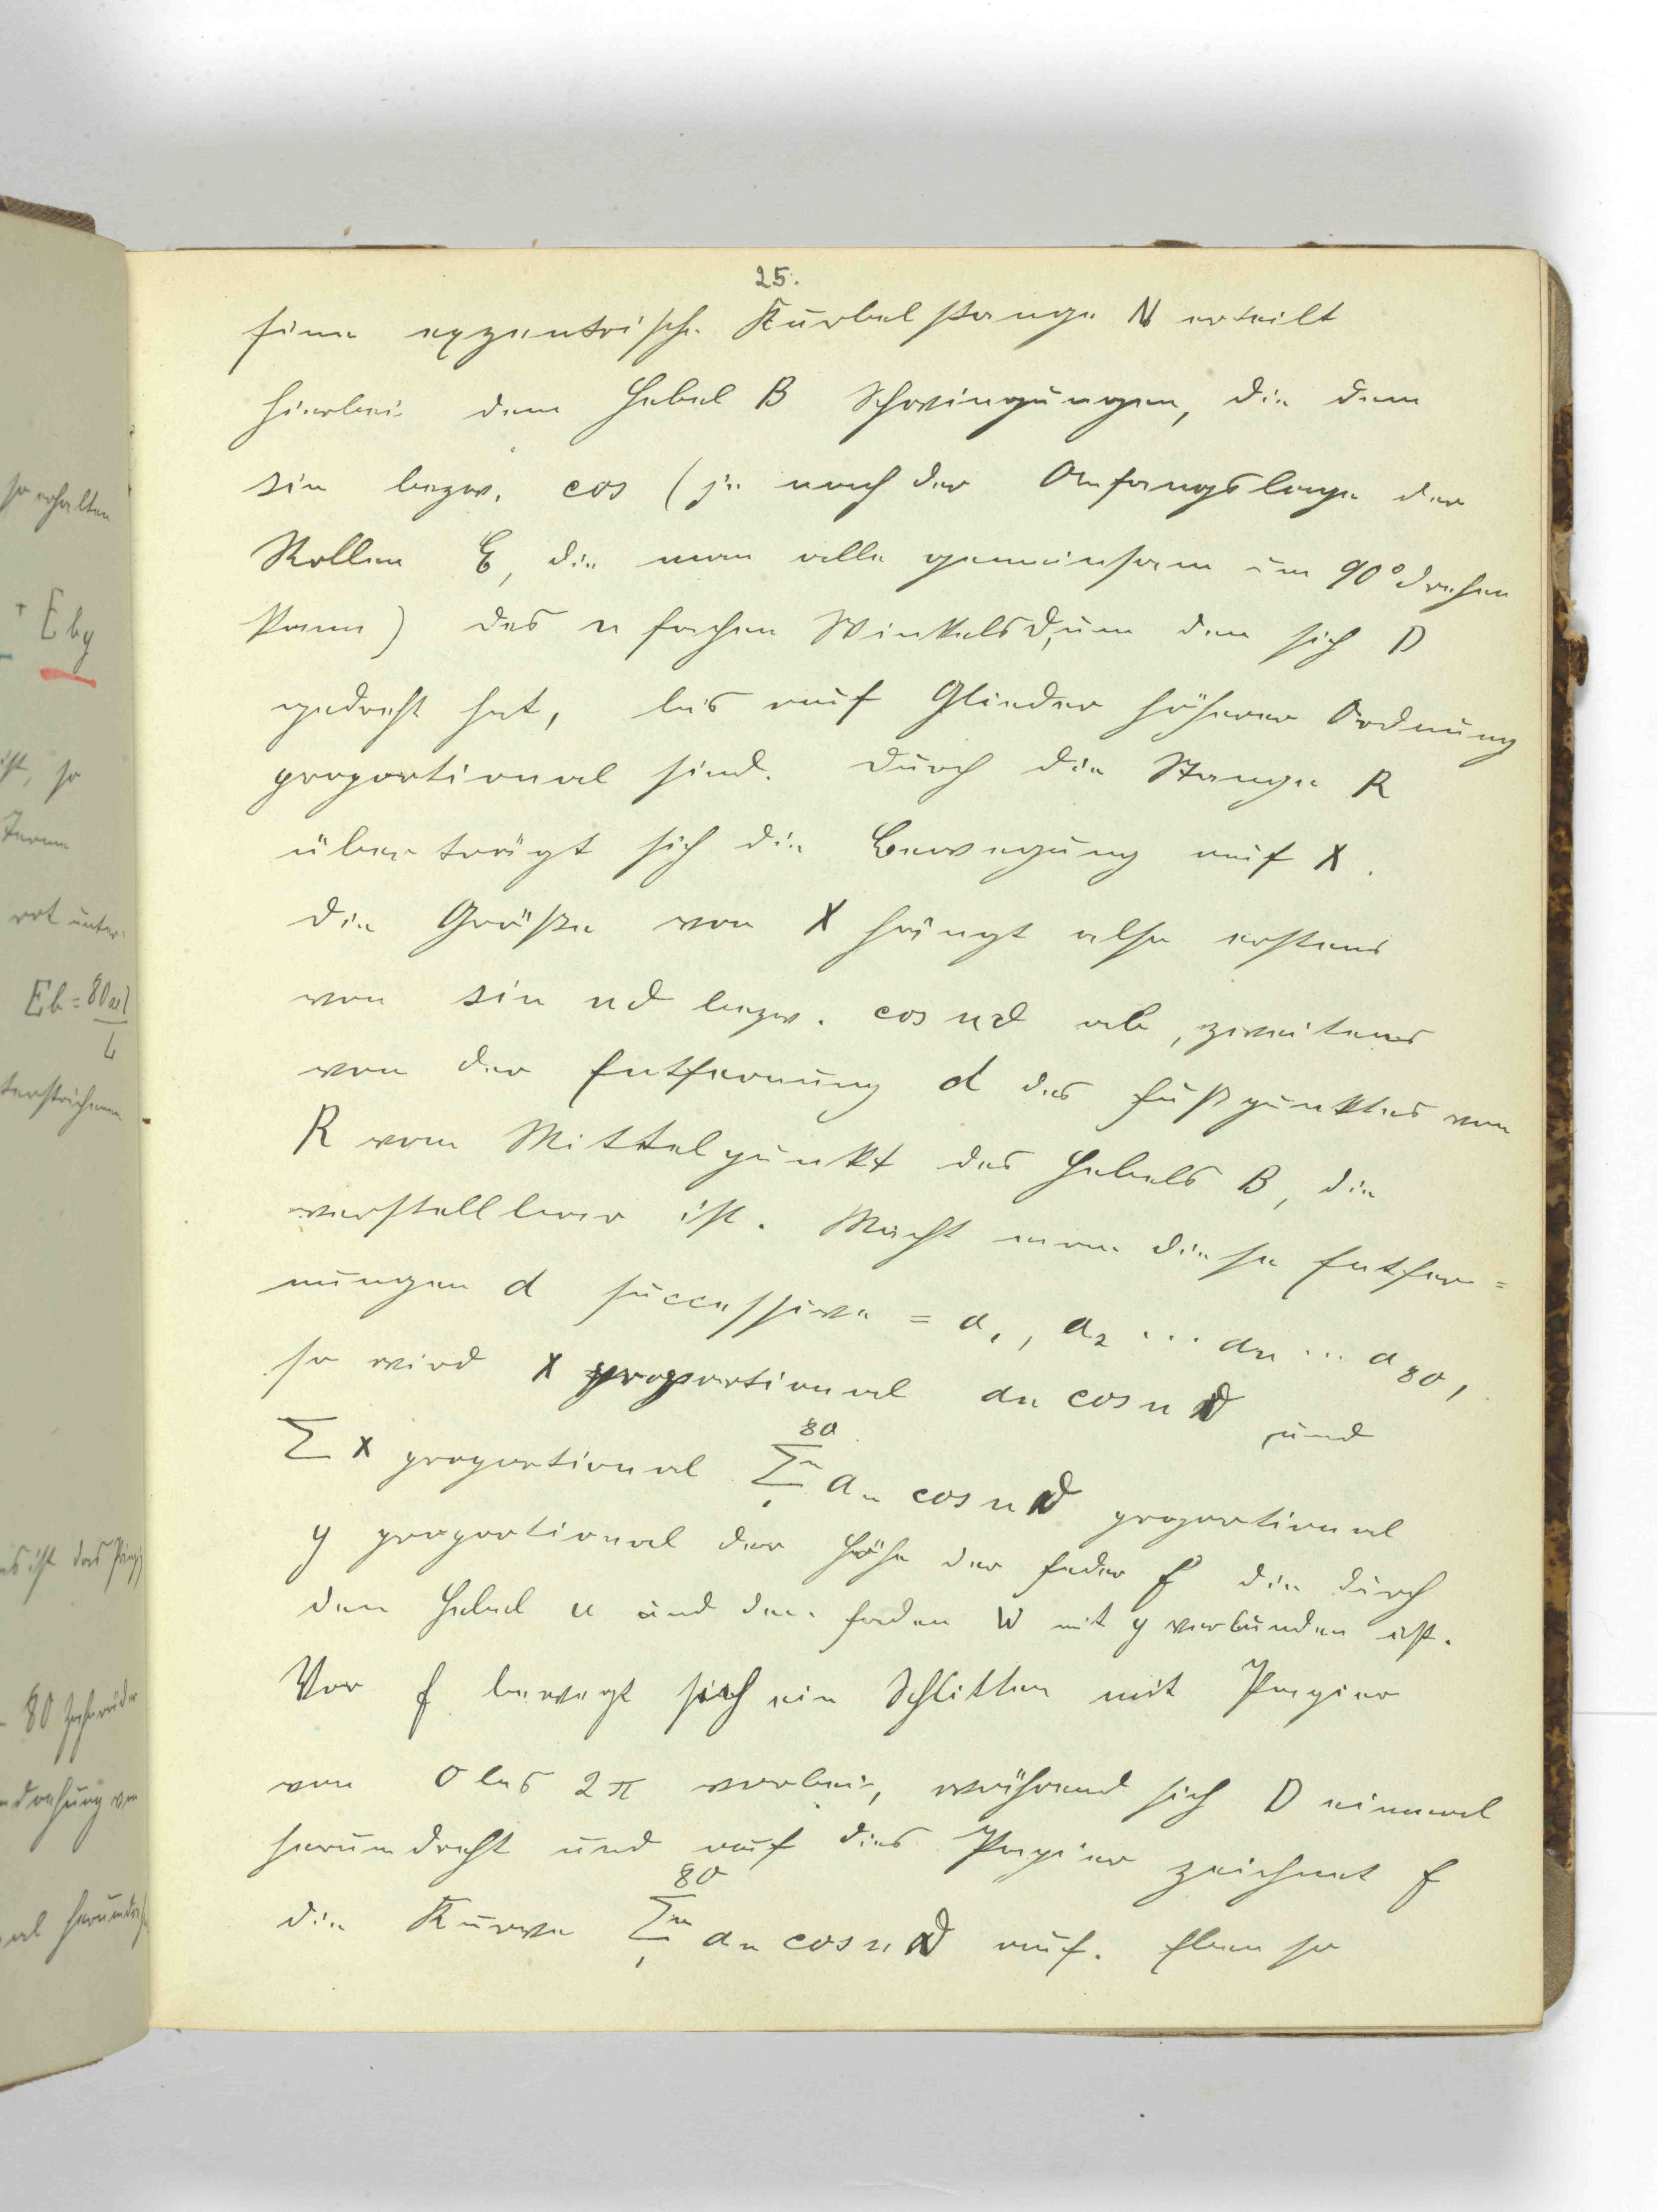 25.
Eine exzentrische Kurbelstange N erteilt
hierbei dem Hebel B Schwingungen, die dem
sin bezw. cos (je nach der Anfangslage der
Rollen E, die man alle gemeinsam um 90° drehen
kann) des n fachen Winkels ϑ, um den sich D
gedreht hat, bis auf Glieder höherer Ordnung
proportional sind. Durch die Stange R
überträgt sich die Bewegung auf X.
Die Größe von X hängt also erstens
von sin nϑ bezw. cos nϑ ab, zweitens
von der Entfernung d des Fußpunktes von
R vom Mittelpunkt des Hebels B, die
verstellbar ist. Macht man diese Entfer=
nungen d successive = a₁, a₂ ... an ... a80,
so wird X proportional an cos n ϑ und
∑ X proportional 80∑n1 an cos n ϑ proportional
y proportional der Höhe der Feder F die durch
den Hebel u und den Faden W mit y verbunden ist.
Vor F bewegt sich ein Schlitten mit Papier
von 0 bis 2π vorbei, während sich D einmal
herumdreht und auf dies Papier zeichnet F
die Kurve 80∑n1 an cos n ϑ auf. Eben so
so erhalten
+ Eby
ist, so
rot unter-
Eb = 80
es ist das
80 Zahnräder